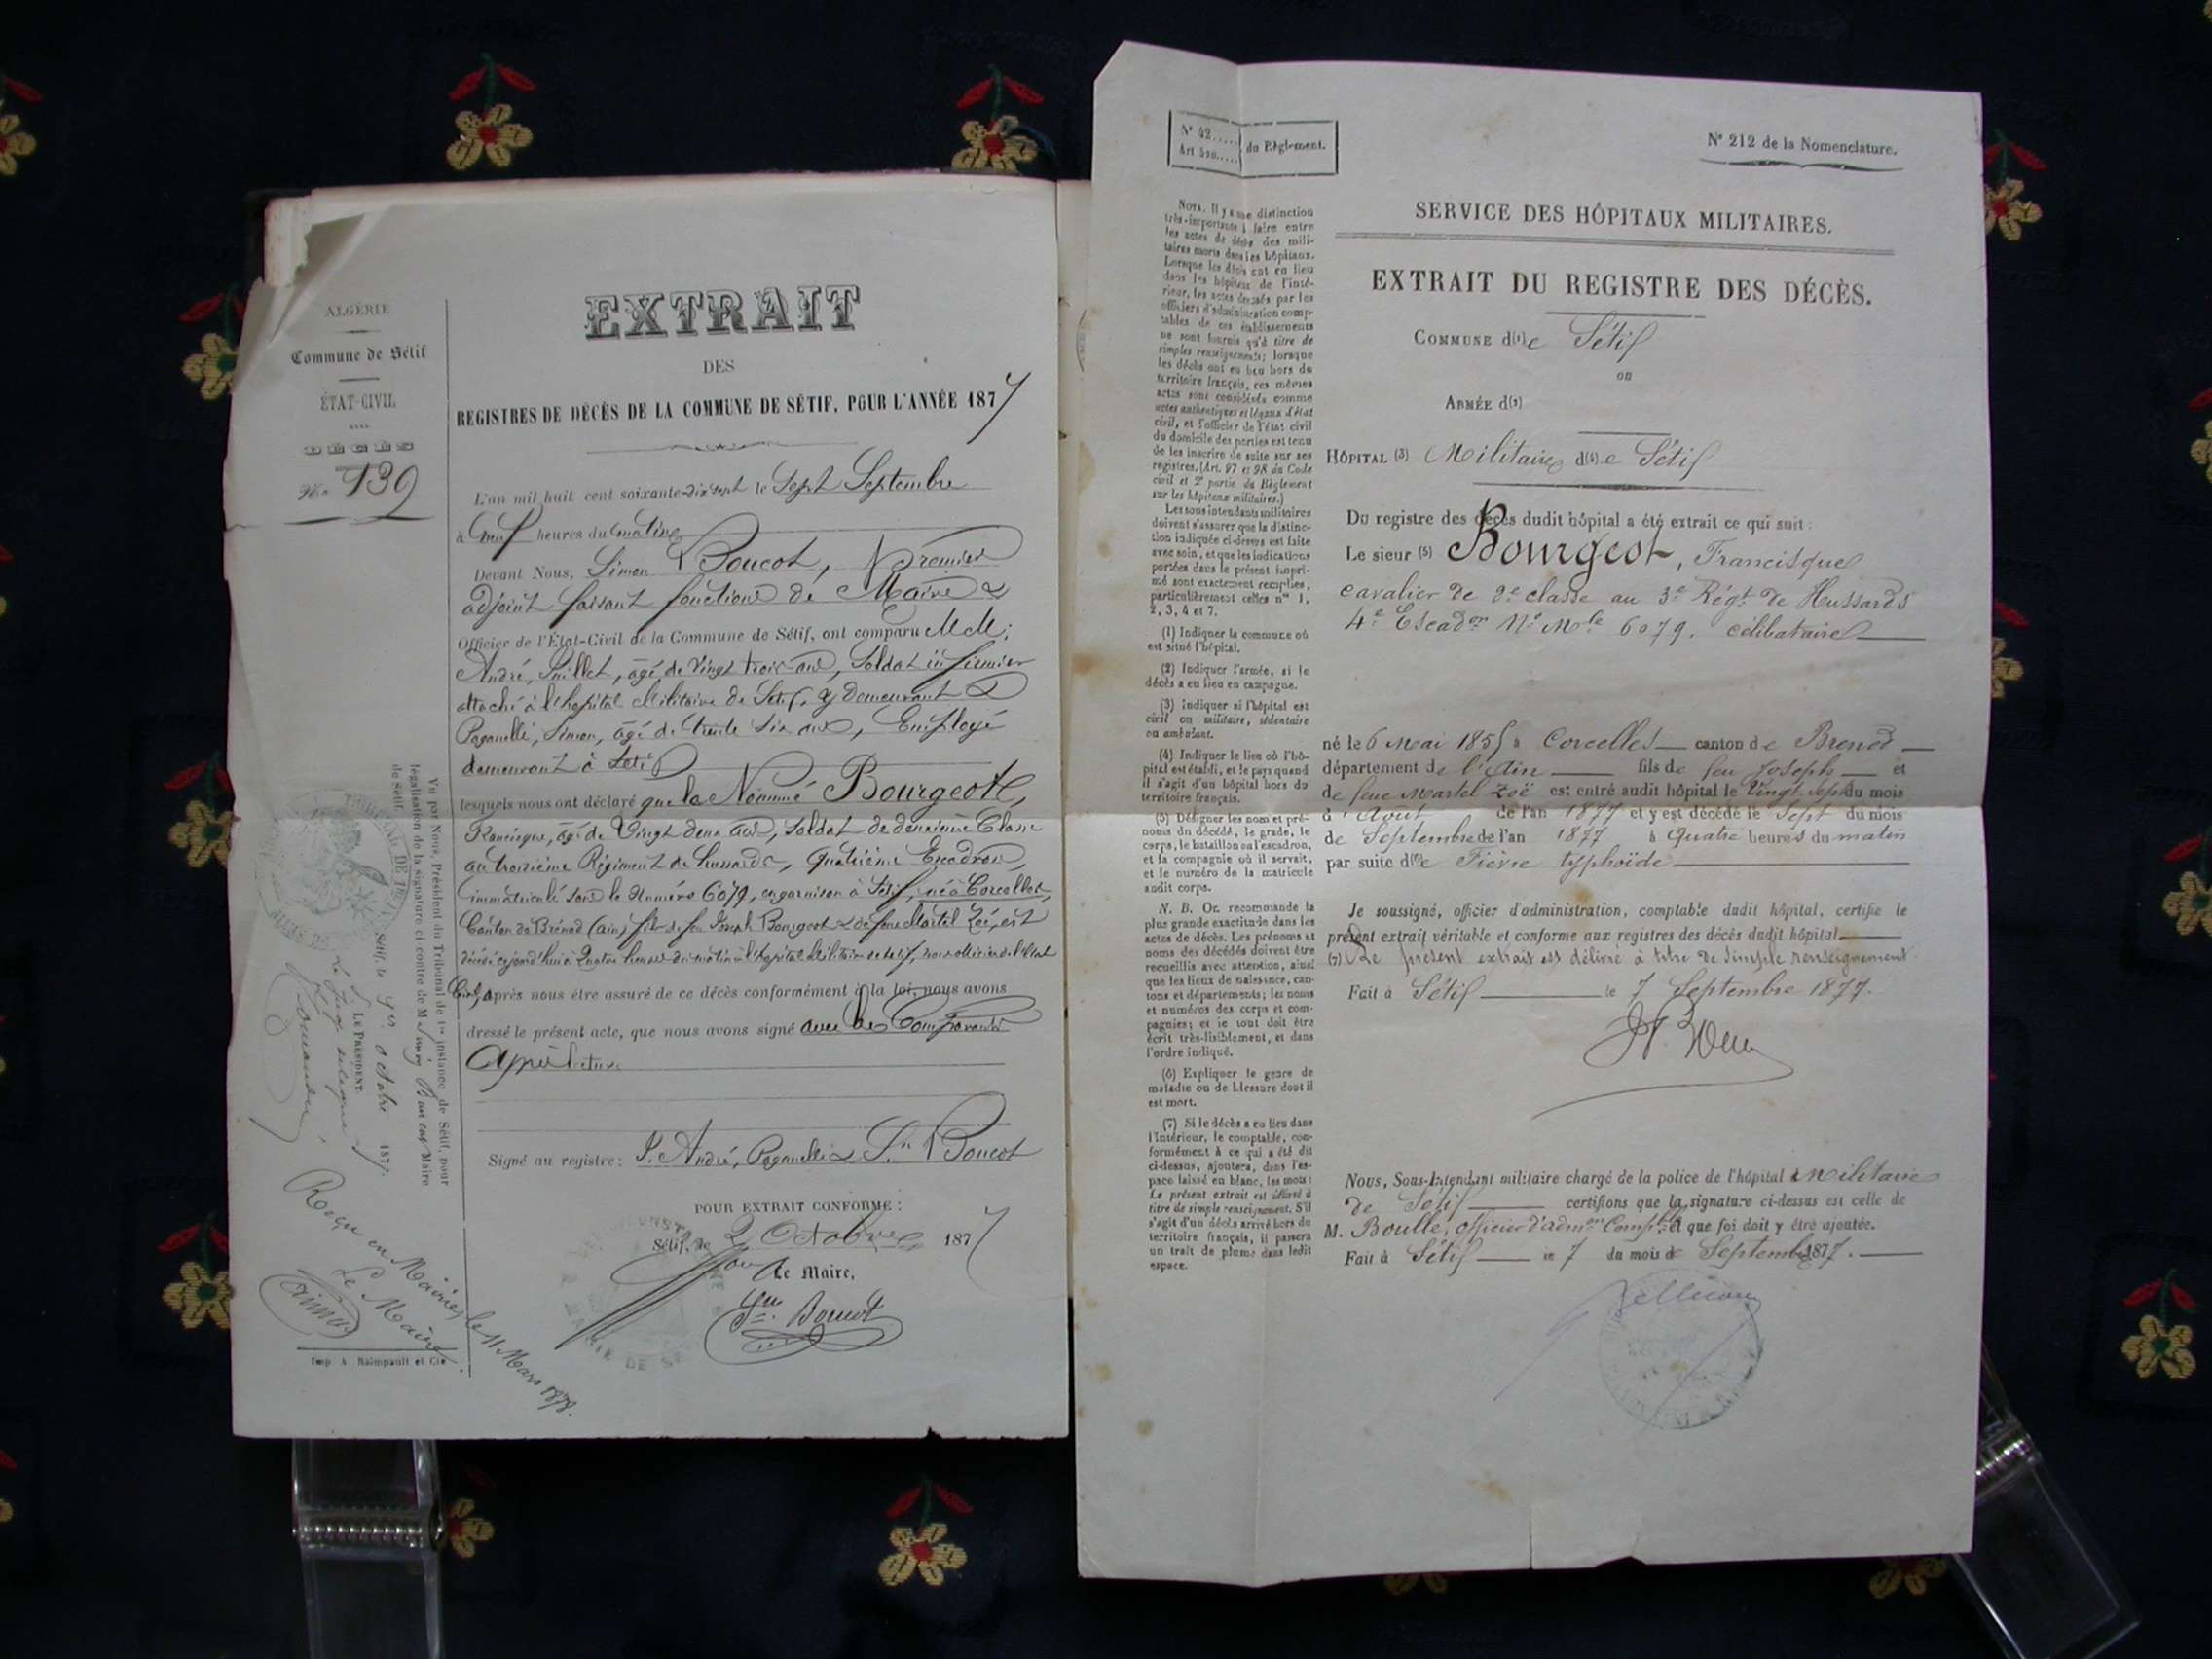 ALGÉRIE
Commune de Sétif
ÉTAT-CIVIL
DÉCÈS
No 139
EXTRAIT
DES
REGISTRES DE DÉCÈS DE LA COMMUNE DE SÉTIF, POUR L'ANNÉE 1877
L'an mil huit cent soixante-dix sept le Sept Septembre
à neuf heures du matin
Devant Nous, Simon Boucot, Premier
adjoint faisant fonctions de Maire &
Officier de l'État-Civil de la Commune de Sétif, ont comparu MM:
André, , âgé de Vingt trois ans, Soldat infirmier
attaché à l'hopital Militaire de Sétif, y demeurant &
Paganelli, Simon, âgé de trente six ans, Employé
demeurant à Sétif
lesquels nous ont déclaré que le Nommé Bourgeot,
Francisque, âgé de Vingt deux ans, Soldat de deuxième Classe
au troisième Régiment de hussards, quatrième Escadron,
immatriculé sous le Numéro 6079, en garnison à Sétif, né à Corcelles,
Canton de Brénod (Ain) fils de feu Joseph Bourgeot & de feue Martel Zoé, est
décédé aujourd'hui à Quatre heures du matin à l'hopital Militaire de Sétif, nous officier de l'Etat
Civil, après nous être assuré de ce décès conformément à la loi, nous avons
dressé le présent acte, que nous avons signé avec les Comparants
Après lecture.
Signé au registre: André, Paganelli & Sn Boucot
POUR EXTRAIT CONFORME:
Sétif, le 2 Octobre 1877
Le Maire,
Sn. Boucot
Vu par Nous, Président du Tribunal de 1re instance de Sétif, pour
légalisation de la signature ci-contre de M Simon Boucot Maire
de Sétif.
Sétif, le Octobre 1877.
LE PRÉSIDENT
Le Juge
Reçu en Mairie, le 11 Mars 1878.
Le Maire.
Imp. A. Raimpault et Cie
MAIRIE DE SÉ
N° 42.....
Art 510.....
du Règlement.
N° 212 de la Nomenclature.
SERVICE DES HÔPITAUX MILITAIRES.
EXTRAIT DU REGISTRE DES DÉCÈS.
COMMUNE d(1)e Sétif
ou
ARMÉE d(2)
HÔPITAL (3) Militaire d(4)e Sétif
Du registre des décès dudit hôpital a été extrait ce qui suit:
Le sieur (5) Bourgeot, Francisque
cavalier de 2e classe au 3e Régt de Hussards
4e Escadon No Mle 6079. célibataire
né le 6 Mai 1855 à Corcelles canton de Brenod
département de l'Ain fils de feu Joseph et
de feue Martel Zoë est entré audit hôpital le Vingt sept du mois
d'Août de l'an 1877 et y est décédé le Sept du mois
de Septembre de l'an 1877 à quatre heures du matin
par suite d(6)e Fièvre typhoïde
Je soussigné, officier d'administration, comptable dudit hôpital, certifie le
présent extrait véritable et conforme aux registres des décès dudit hôpital
(7) Le présent extrait est délivré à titre de simple renseignement.
Fait à Sétif le 7 Septembre 1877.
Nous, Sous-Intendant militaire chargé de la police de l'hôpital Militaire
de Sétif certifions que la signature ci-dessus est celle de
M. Boulle, officier d'admon Compble & que foi doit y être ajoutée.
Fait à Sétif le 7 du mois de Septembre 1877.
NOTA. Il y a une distinction
très-importante à faire entre
les actes de décès des mili-
taires morts dans les hôpitaux.
Lorsque les décès ont eu lieu
dans les hôpitaux de l'inté-
rieur, les actes dressés par les
officiers d'administration comp-
tables de ces établissements
ne sont fournis qu'à titre de
simples renseignements; lorsque
les décès ont eu lieu hors du
territoire français, ces mêmes
actes sont considérés comme
actes authentiques et légaux d'état
civil, et l'officier de l'état civil
du domicile des parties est tenu
de les inscrire de suite sur ses
registres. (Art. 97 et 98 du Code
civil et 2e partie du Règlement
sur les hôpitaux militaires.)
Les sous-intendants militaires
doivent s'assurer que la distinc-
tion indiquée ci-dessus est faite
avec soin, et que les indications
portées dans le présent impri-
mé sont exactement remplies,
particulièrement celles nos 1,
2, 3, 4 et 7.
(1) Indiquer la commune où
est situé l'hôpital.
(2) Indiquer l'armée, si le
décès a eu lieu en campagne.
(3) Indiquer si l'hôpital est
civil ou militaire, sédentaire
ou ambulant.
(4) Indiquer le lieu où l'hô-
pital est établi, et le pays quand
il s'agit d'un hôpital hors du
territoire français.
(5) Désigner les nom et pré-
noms du décédé, le grade, le
corps, le bataillon ou l'escadron,
et la compagnie où il servait,
et le numéro de la matricule
audit corps.
N. B. On recommande la
plus grande exactitude dans les
actes de décès. Les prénoms et
noms des décédés doivent être
recueillis avec attention, ainsi
que les lieux de naissance, can-
tons et départements; les noms
et numéros des corps et com-
pagnies; et le tout doit être
écrit très-lisiblement, et dans
l'ordre indiqué.
(6) Expliquer le genre de
maladie ou de blessure dont il
est mort.
(7) Si le décès a eu lieu dans
l'intérieur, le comptable, con-
formément à ce qui a été dit
ci-dessus, ajoutera, dans l'es-
pace laissé en blanc, les mots:
Le présent extrait est délivré à
titre de simple renseignement. S'il
s'agit d'un décès arrivé hors du
territoire français, il passera
un trait de plume dans ledit
espace.